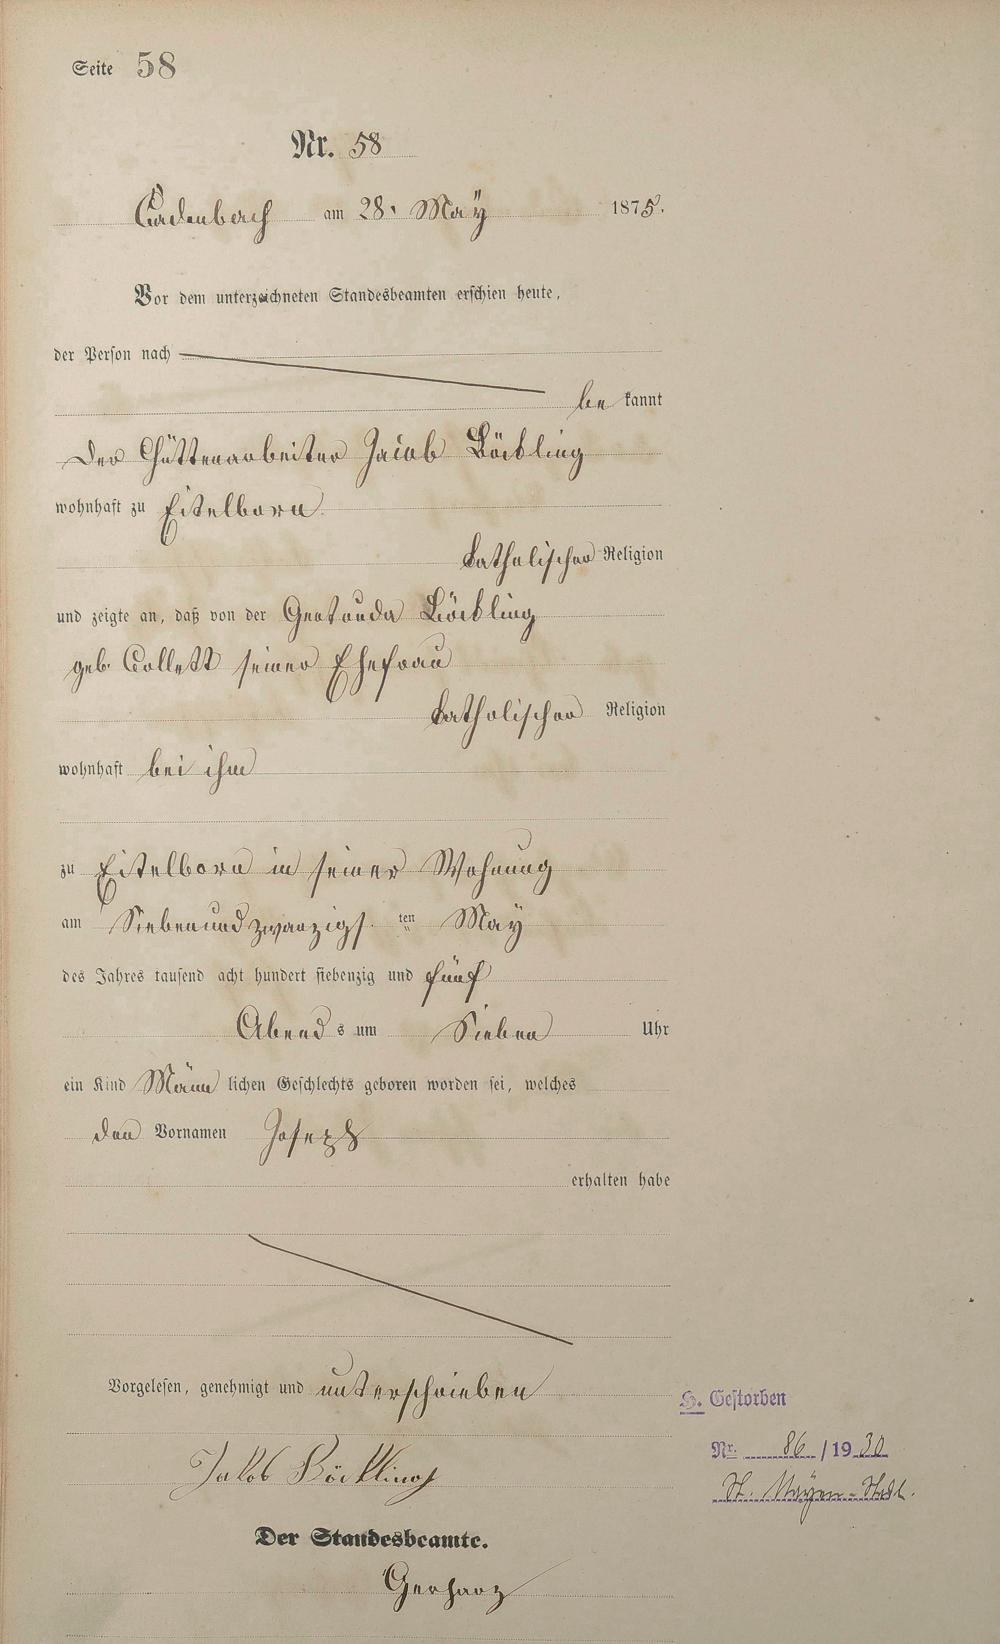 Seite 58
Nr. 58
Cadenbach am 28. Maÿ 1875.
Vor dem unterzeichneten Standesbeamten erschien heute,
der Person nach
be kannt
Der Hüttenarbeiter Jacob Böckling
wohnhaft zu Eitelborn
katholischer Religion
und zeigte an, daß von der Gertruda Böckling
geb. Collett seiner Ehefrau
katholischer Religion
wohnhaft bei ihm
zu Eitelborn in seiner Wohnung
am Siebenundzwanzigs ten Maÿ
des Jahres tausend acht hundert siebenzig und fünf
Abend s um Sieben Uhr
ein Kind Männ lichen Geschlechts geboren worden sei, welches
den Vornamen Joseph
erhalten habe
Vorgelesen, genehmigt und unterschrieben
Jakob Böckling
Der Standesbeamte.
Gerharz
H. Gestorben
Nr. 86 / 19 30
St. Mayen-Stadt.